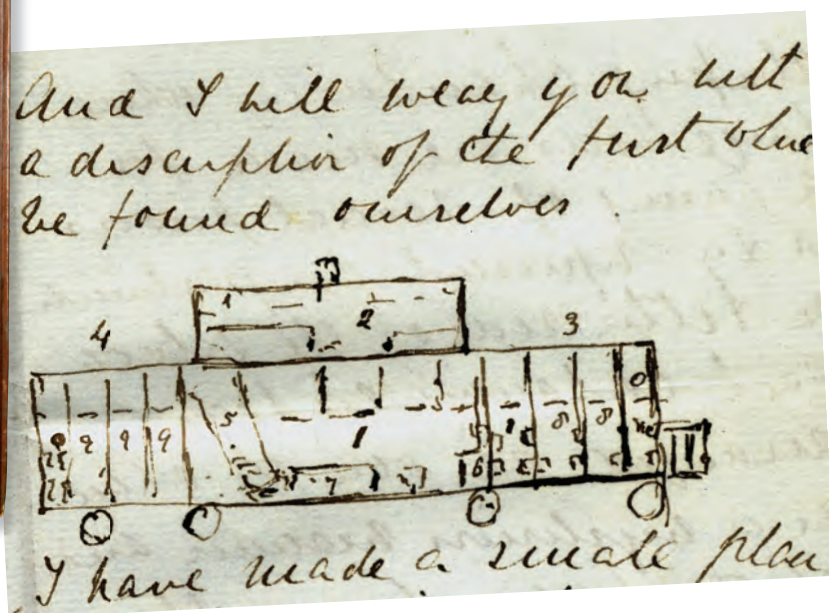 And I will weary you with
a discription of the first
we found ourselves.
4
1
2
3
5
1
8
8
9
9
9
7
6
I have made a small plan